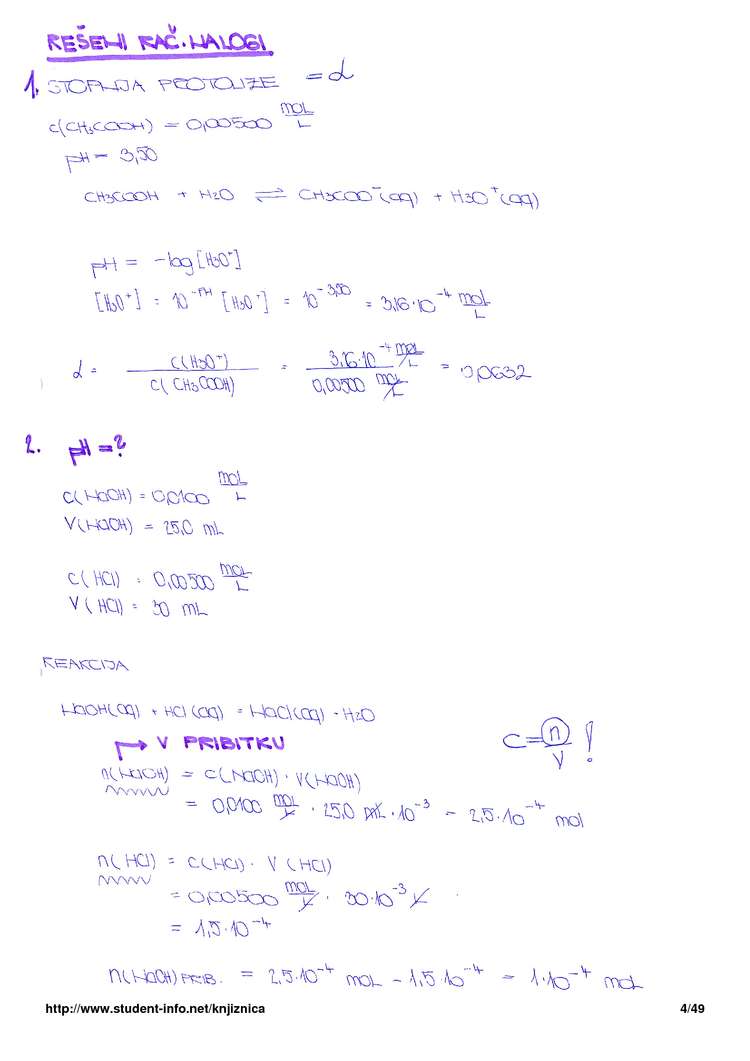 REŠENI RAČ. NALOGI
1. STOPNJA PROTOLIZE = α
c(CH3COOH) = 0,00500 mol/L
pH = 3,50
CH3COOH + H2O ⇌ CH3COO⁻(aq) + H3O⁺(aq)
pH = -log[H3O⁺]
[H3O⁺] = 10^-pH [H3O⁺] = 10^-3,50 = 3,16·10^-4 mol/L
α = c(H3O⁺)/c(CH3COOH) = 3,16·10^-4 mol/L / 0,00500 mol/L = 0,0632
2. pH = ?
c(NaOH) = 0,0100 mol/L
V(NaOH) = 25,0 mL
c(HCl) = 0,00500 mol/L
V(HCl) = 30 mL
REAKCIJA
NaOH(aq) + HCl(aq) = NaCl(aq) + H2O
→ V PRIBITKU
c = n/V !
n(NaOH) = c(NaOH) · V(NaOH)
= 0,0100 mol/L · 25,0 mL · 10^-3 = 2,5·10^-4 mol
n(HCl) = c(HCl) · V(HCl)
= 0,00500 mol/L · 30·10^-3 L
= 1,5·10^-4
n(NaOH) PRIB. = 2,5·10^-4 mol - 1,5·10^-4 = 1·10^-4 mol
http://www.student-info.net/knjiznica 4/49